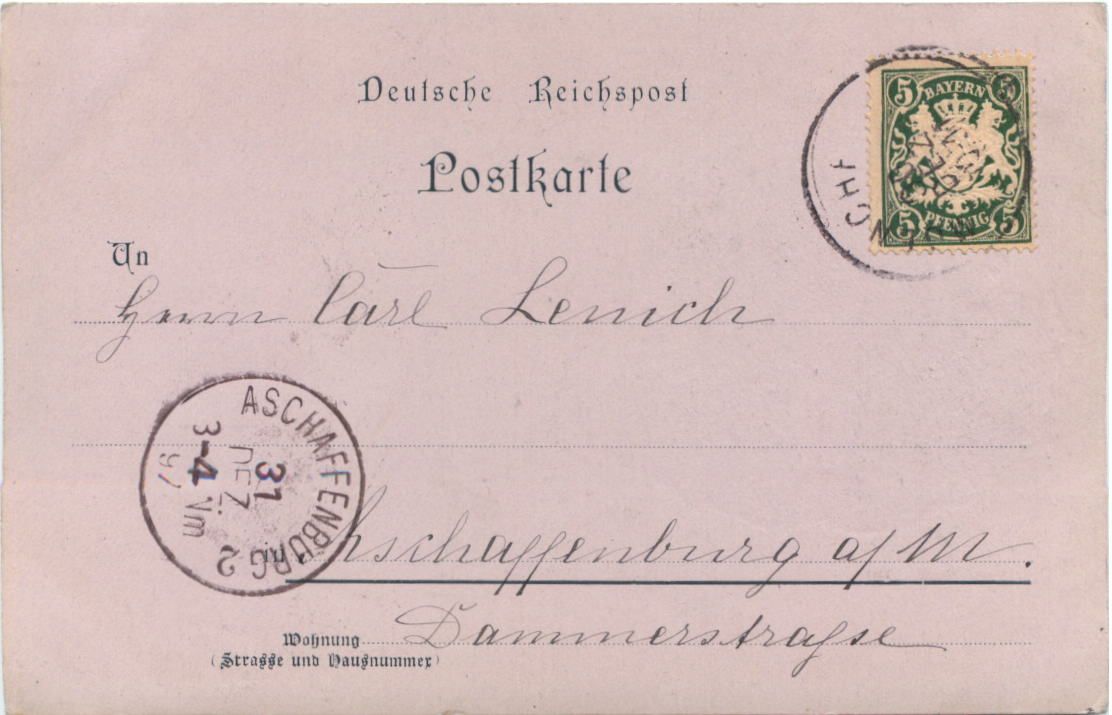 Deutsche Reichspost
Postkarte
5 BAYERN 5
5 PFENNIG 5
An
Herrn Carl Lenich
ASCHAFFENBURG 2
31
DEZ.
3-4 Vm
97
in
Aschaffenburg a/M.
Wohnung Dammerstraſse
(Strasse und Hausnummer)